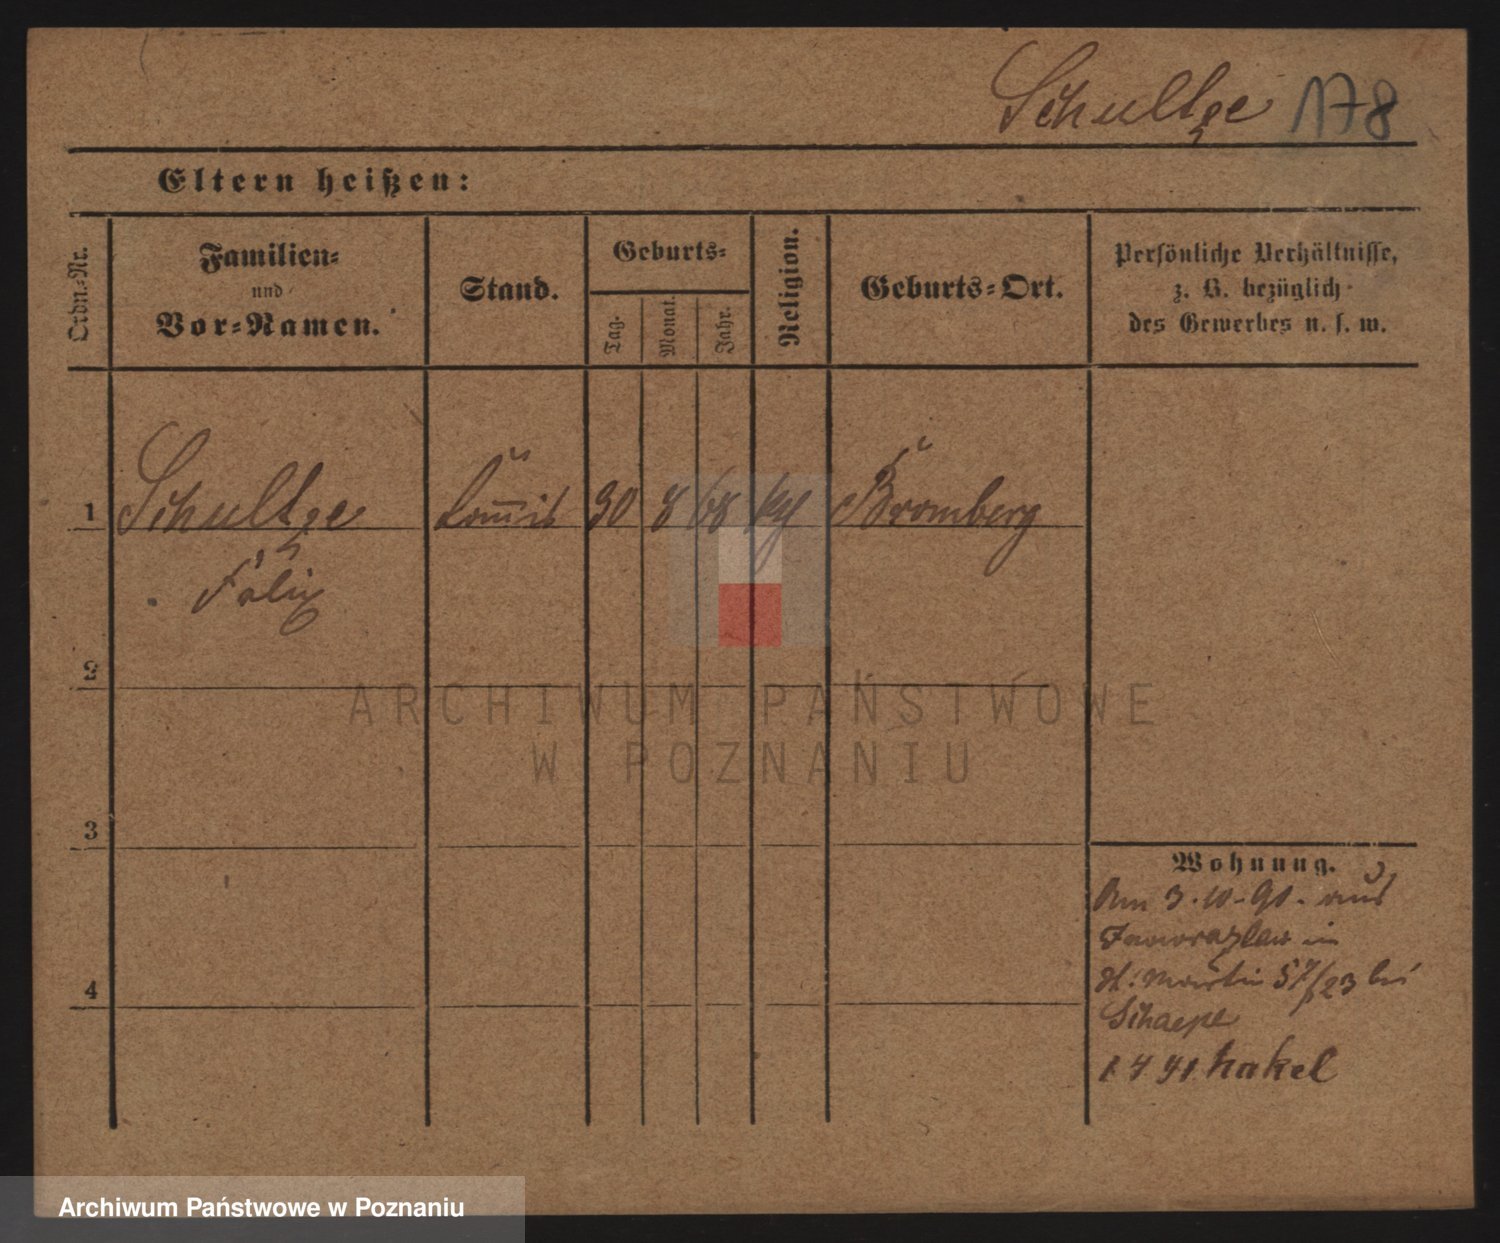 Schultze 178
Eltern heißen:
Ordn.-Nr.
Familien-
und
Vor-Namen.
Stand.
Geburts-
Tag.
Monat.
Jahr.
Religion.
Geburts-Ort.
Persönliche Verhältnisse,
z. B. bezüglich
des Gewerbes u. s. w.
1 Schultze 30 8 68 Bromberg
Felix
2
3
4
Wohnung.
Am 3.10.90. aus
Inowrazlaw in
St. Martin 57/23 bei
Schaepe
1 4 91 Nakel
ARCHIWUM PAŃSTWOWE
W POZNANIU
Archiwum Państwowe w Poznaniu